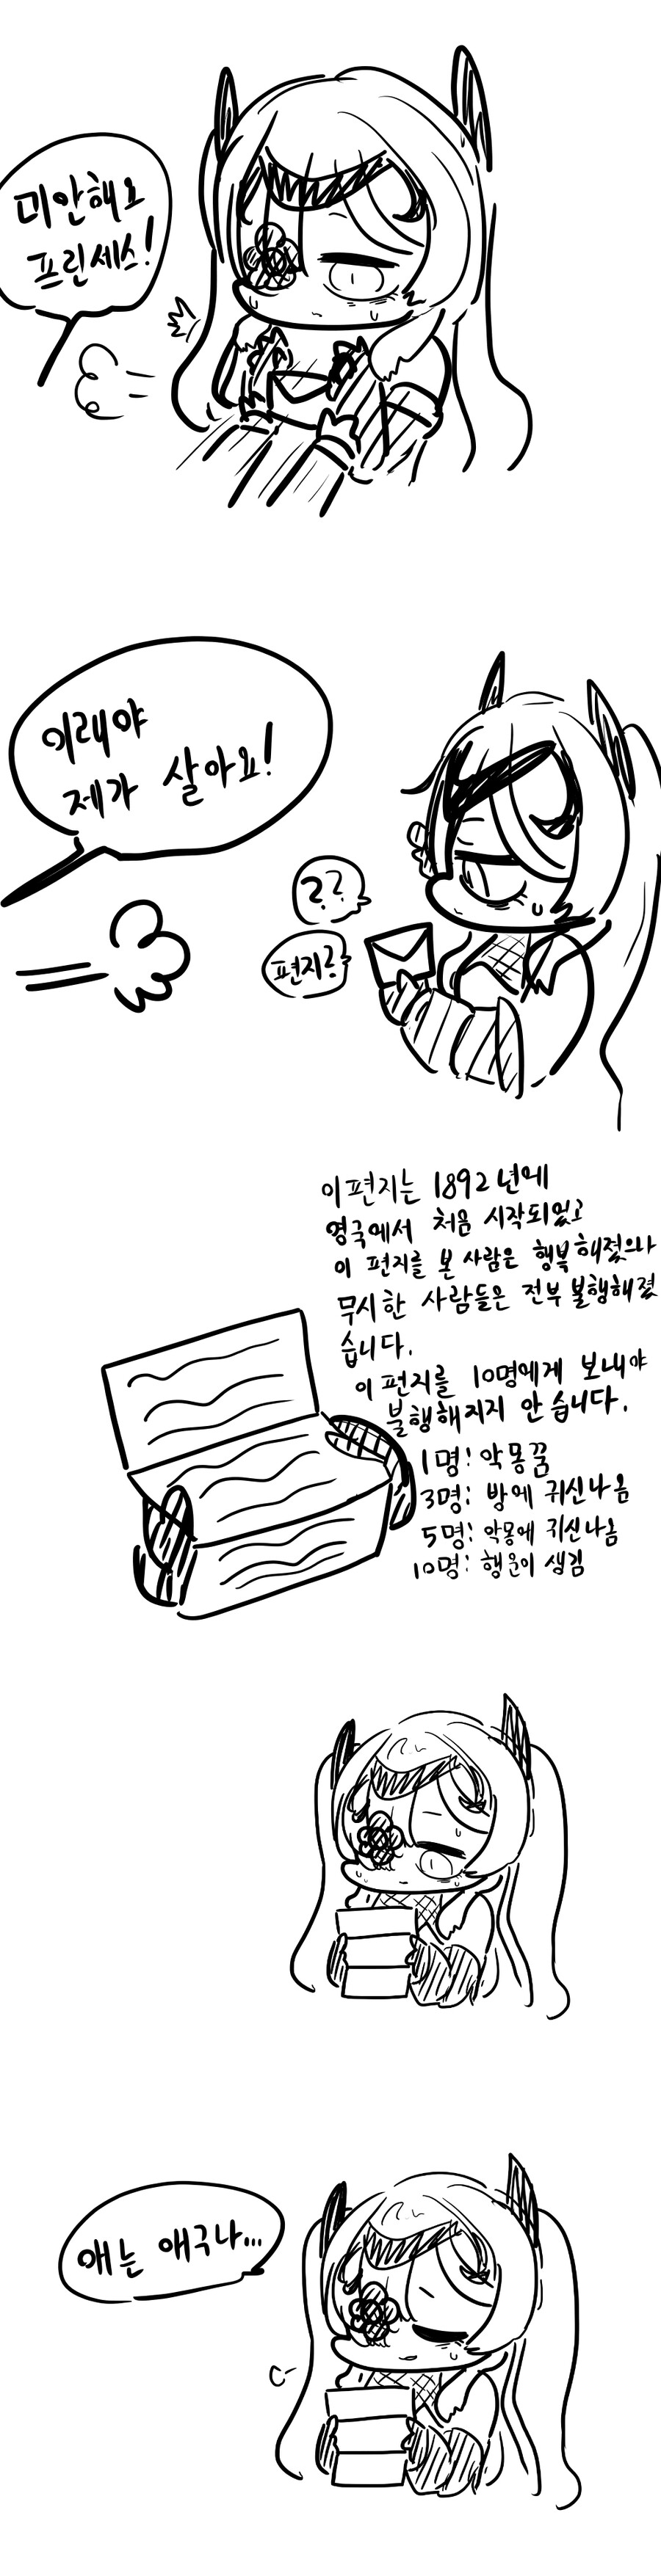 미안해요
프린세스!
이래야
제가 살아요!
??
편지?
이 편지는 1892년에
영국에서 처음 시작되었고
이 편지를 본 사람은 행복해졌으나
무시한 사람들은 전부 불행해졌
습니다.
이 편지를 10명에게 보내야
불행해지지 안습니다.
1명: 악몽꿈
3명: 방에 귀신나옴
5명: 악몽에 귀신나옴
10명: 행운이 생김
애는 애구나...